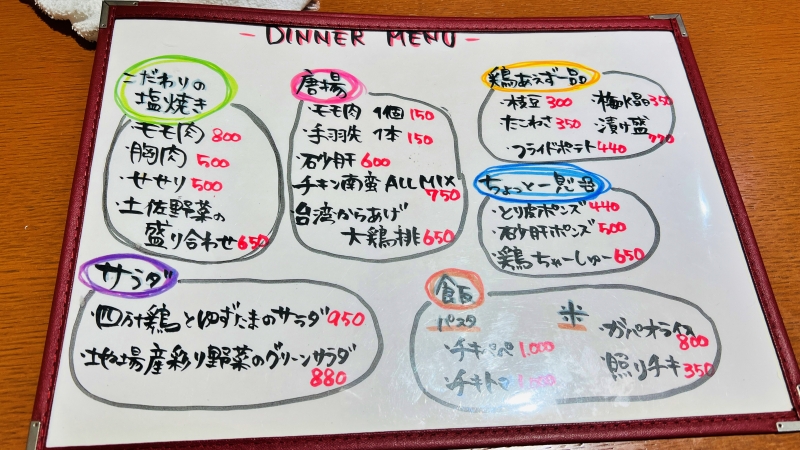 - DINNER MENU -
こだわりの
塩焼き
・モモ肉 800
・胸肉 500
・せせり 500
・土佐野菜の
盛り合わせ 650
唐揚
・モモ肉 1個 150
・手羽先 1本 150
・砂肝 600
・チキン南蛮 ALL MIX
750
・台湾からあげ
大鶏排 650
鶏あえず一品
・枝豆 300
・梅水晶 350
・たこわさ 350
・漬け盛
770
・フライドポテト 440
ちょっと一品
・とり皮ポンズ 440
・砂肝ポンズ 500
・鶏ちゃーしゅー 650
サラダ
・四万十鶏とゆずたまのサラダ 950
・地場産彩り野菜のグリーンサラダ
880
飯
パスタ
・チキペペ 1.000
・チキトマ
米
・ガパオライス
800
・照りチキ 350